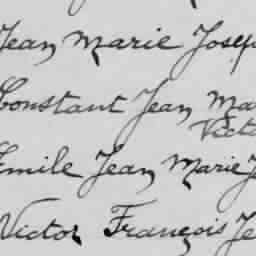 Jean Marie Joseph
Constant Jean Ma
Victo
Emile Jean Marie J
Victor François Je